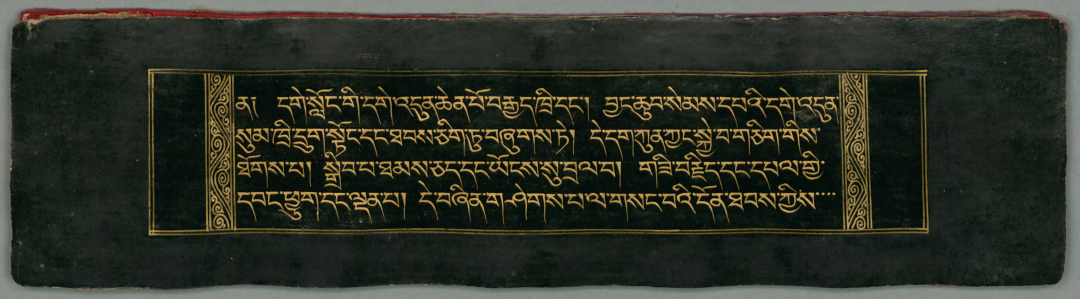 ན། དགེ་སློང་གི་དགེ་འདུན་ཆེན་པོ་བརྒྱད་ཁྲི་དང་། བྱང་ཆུབ་སེམས་དཔའི་དགེ་འདུན་
སུམ་ཁྲི་དྲུག་སྟོང་དང་ཐབས་ཅིག་ཏུ་བཞུགས་ཏེ། དེ་དག་ཀུན་ཀྱང་སྐྱེ་བ་གཅིག་གིས་
ཐོགས་པ། སྒྲིབ་པ་ཐམས་ཅད་དང་ཡོངས་སུ་བྲལ་བ། གཟི་བརྗིད་དང་དཔལ་གྱི་
དབང་ཕྱུག་དང་ལྡན་པ། དེ་བཞིན་གཤེགས་པ་ལ་གསང་བའི་དོན་ཐབས་ཀྱིས་